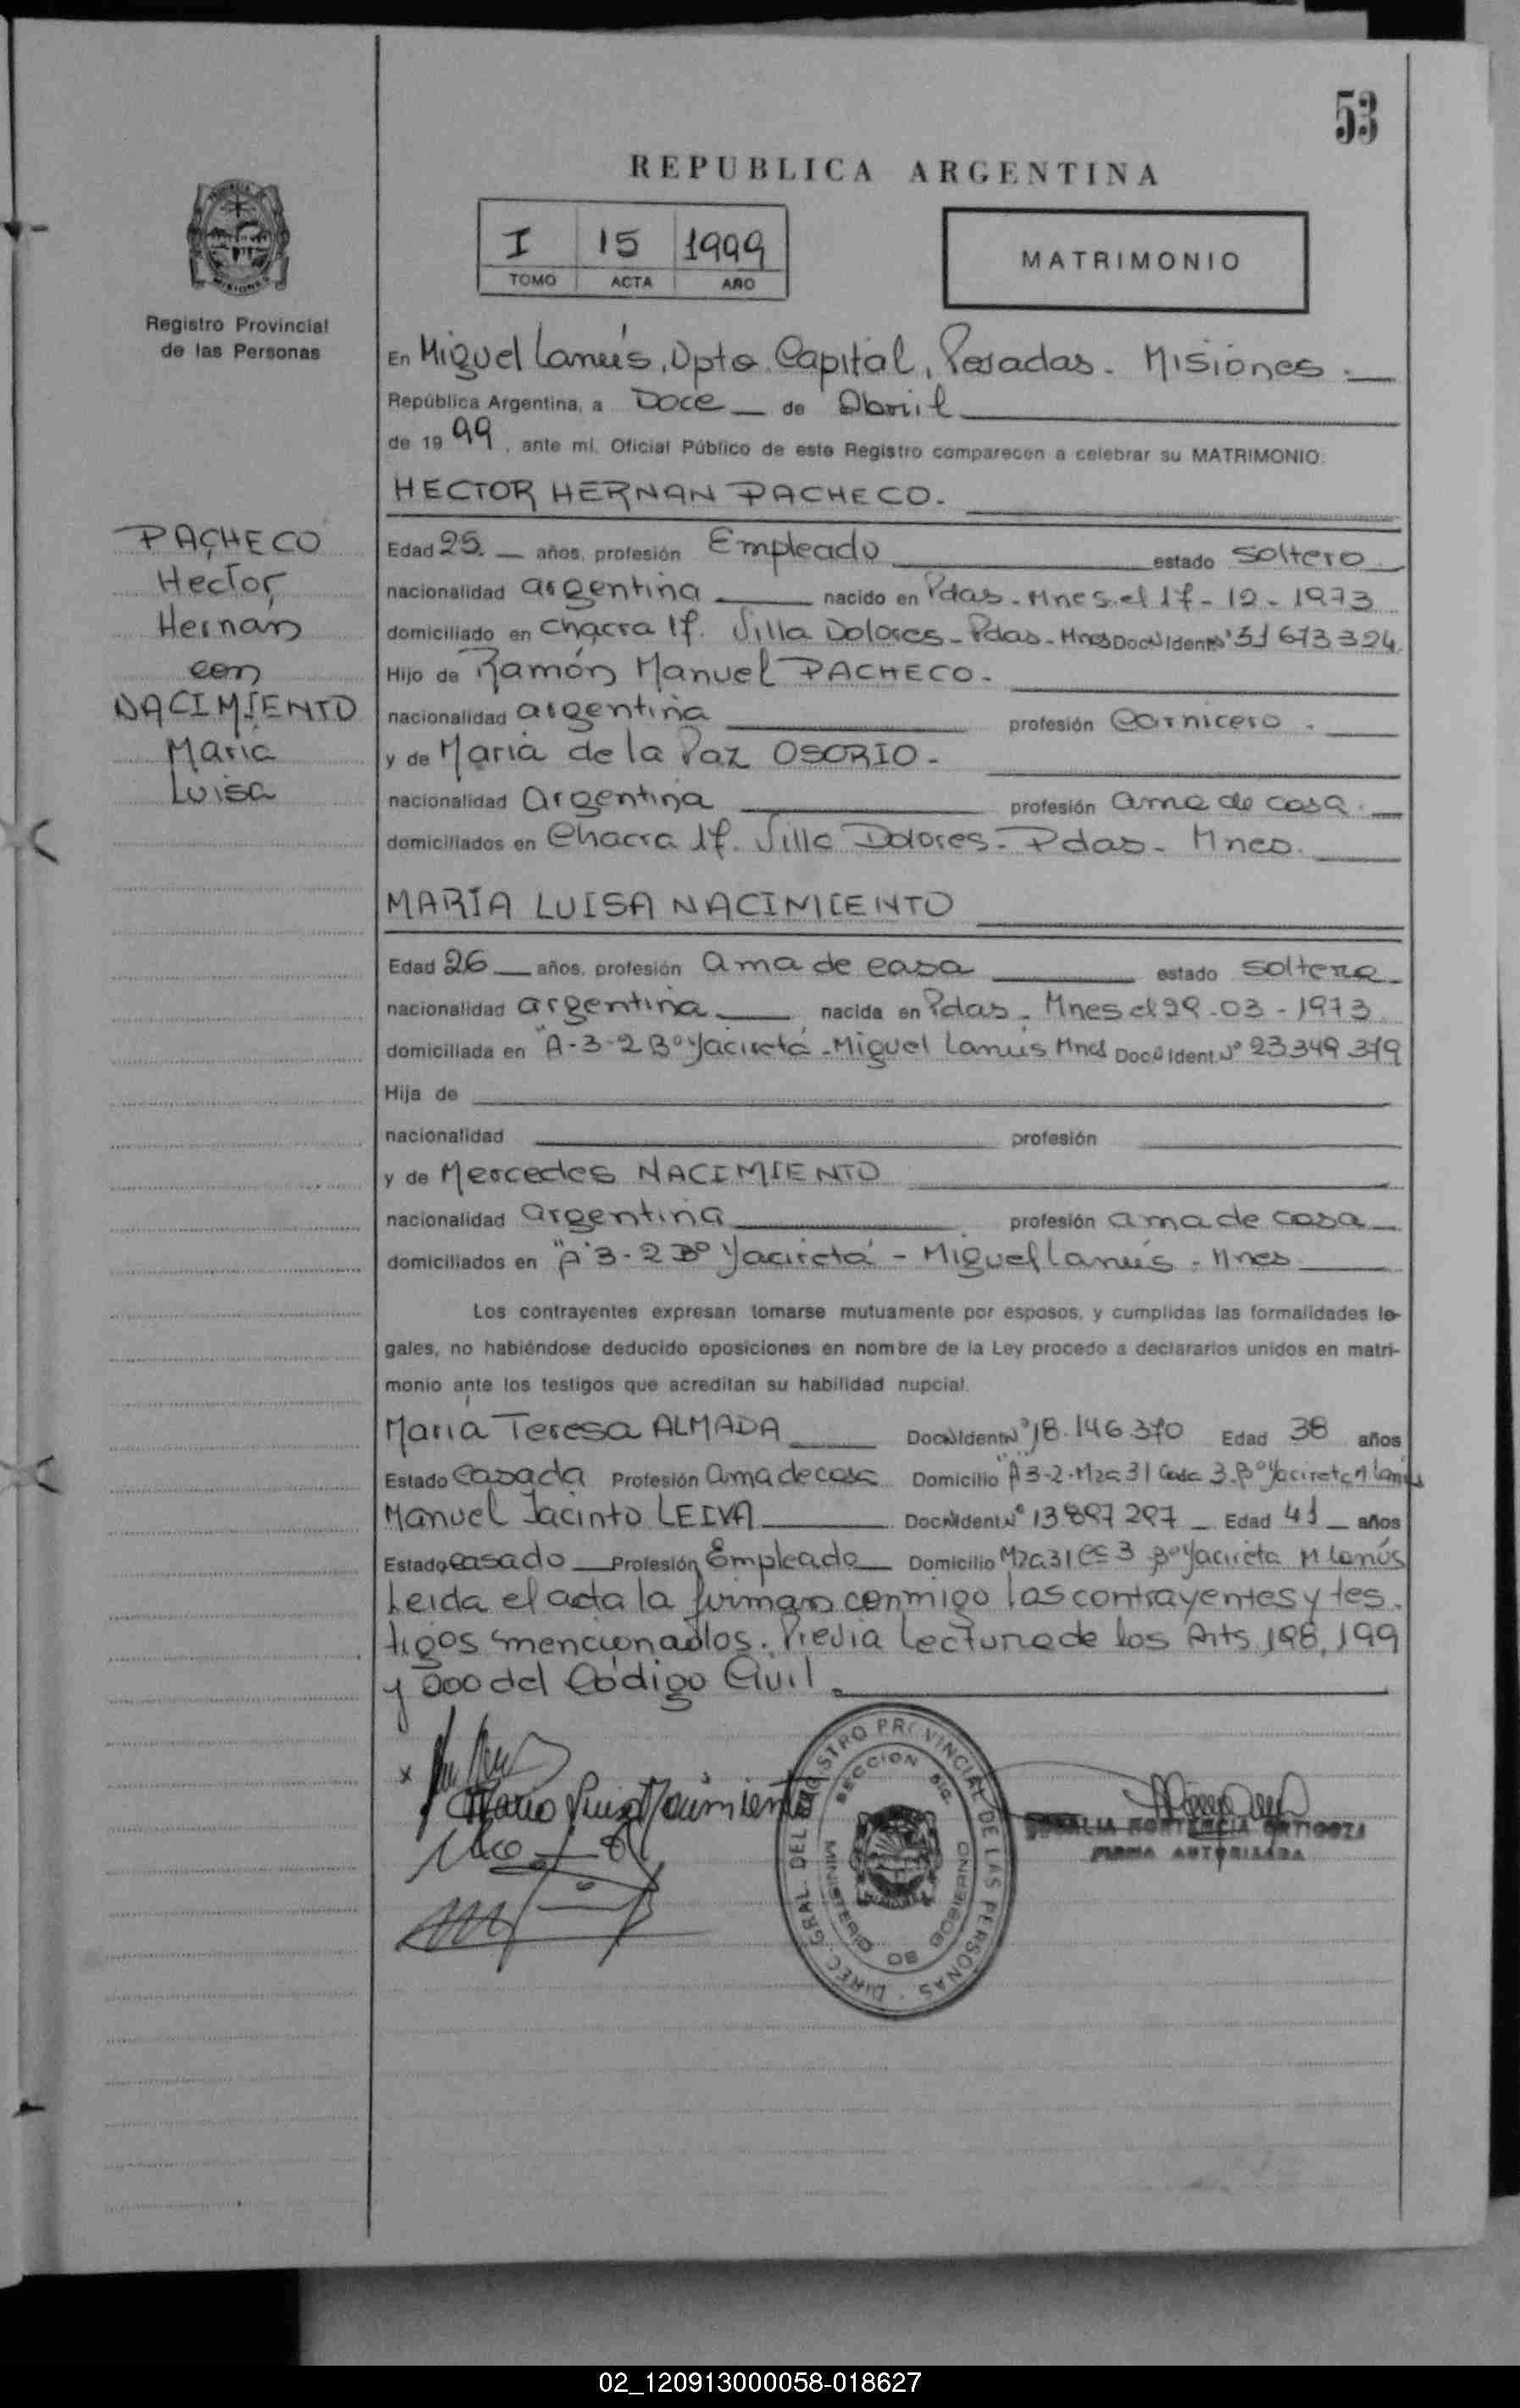 53
REPUBLICA ARGENTINA
I 15 1999
TOMO ACTA AÑO
MATRIMONIO
Registro Provincial
de las Personas
En Miguel Lanús, Dpto. Capital, Posadas - Misiones.
República Argentina, a Doce de Abril
de 1999, ante mí, Oficial Público de este Registro comparecen a celebrar su MATRIMONIO:
HECTOR HERNAN PACHECO.
PACHECO
Hector
Hernan
con
NACIMIENTO
Maria
Luisa
Edad 25. años, profesión Empleado estado soltero
nacionalidad argentina nacido en Pdas - Mnes. el 17 - 12 - 1973
domiciliado en chacra 17. Villa Dolores - Pdas - Mnes Doc Ident Nº 673 324
Hijo de Ramón Manuel PACHECO.
nacionalidad argentina profesión Carnicero.
y de Maria de la Paz OSORIO -
nacionalidad argentina profesión ama de casa.
domiciliados en Chacra 17. Villa Dolores - Pdas - Mnes.
MARÍA LUISA NACIMIENTO
Edad 26 años, profesión ama de casa estado soltera
nacionalidad argentina nacida en Pdas - Mnes el 29 - 03 - 1973
domiciliada en "A-3-2 Bº Yacireta - Miguel Lanús Mnes Doc Ident Nº 23 349 379
Hija de
nacionalidad profesión
y de Mercedes NACIMIENTO
nacionalidad argentina profesión ama de casa
domiciliados en "A"3-2 Bº Yacireta - Miguel Lanús - Mnes
Los contrayentes expresan tomarse mutuamente por esposos, y cumplidas las formalidades le-
gales, no habiéndose deducido oposiciones en nombre de la Ley procedo a declararlos unidos en matri-
monio ante los testigos que acreditan su habilidad nupcial.
Maria Teresa ALMADA Doc Ident Nº 18.146.370 Edad 38 años
Estado Casada Profesión ama de casa Domicilio "A 3-2-Mza 31 Casa 3-Bº Yacireta M Lanús
Manuel Jacinto LEIVA Doc Ident Nº 13 897 297 Edad 41 años
Estado casado Profesión Empleado Domicilio Mza 31 Cs 3 Bº Yacireta M Lanús
Leida el acta la firman conmigo los contrayentes y tes-
tigos mencionados. Previa Lectura de los Arts 198, 199
y 200 del Código Civil.
Maria Luisa Nacimiento
DIREC. GRAL. DEL REGISTRO PROVINCIAL DE LAS PERSONAS
SECCION
MINISTERIO DE GOBIERNO
HORTENCIA ORTIGOZA
FIRMA AUTORIZADA
02_120913000058-018627